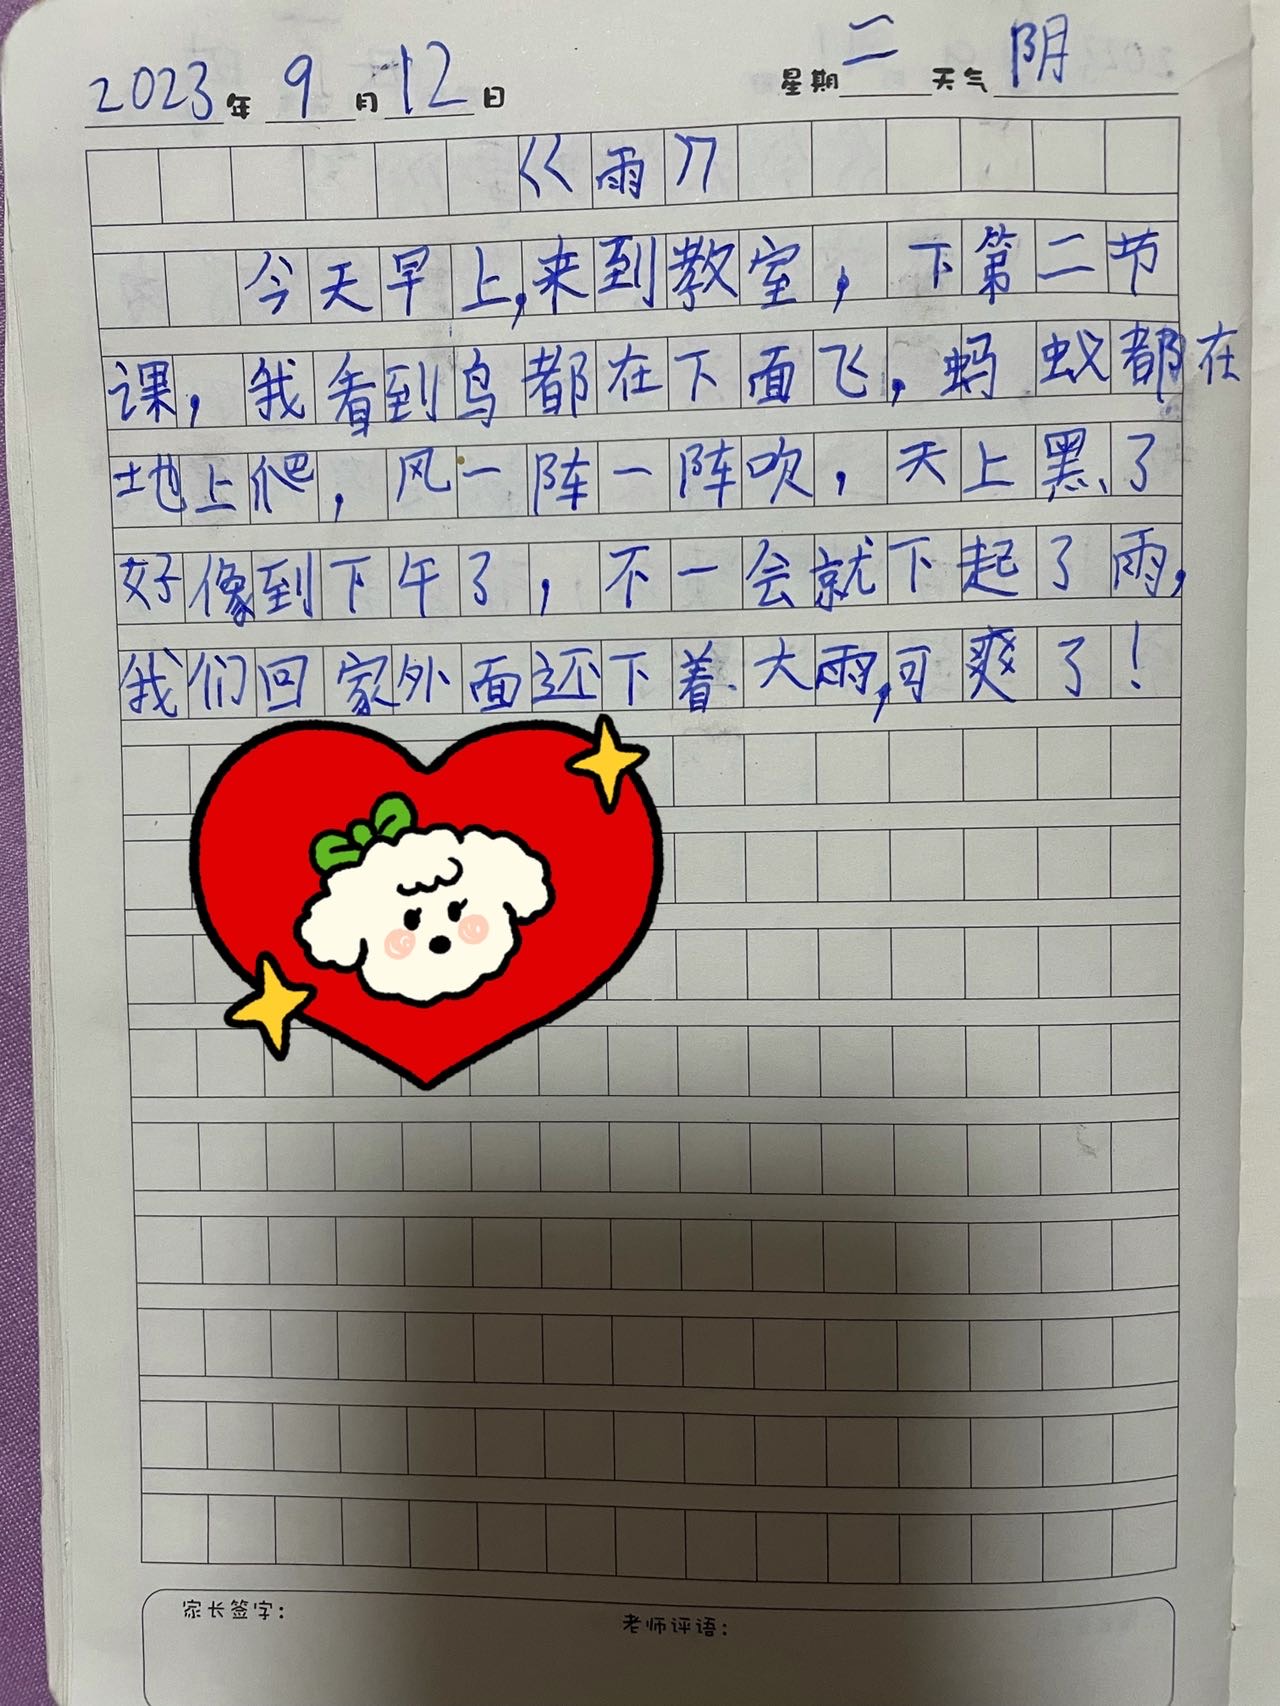 2023年 9月12日 星期二 天气 阴
《雨》
今天早上,来到教室，下第二节
课，我看到鸟都在下面飞，蚂蚁都在
地上爬，风一阵一阵吹，天上黑了
好像到下午了，不一会就下起了雨,
我们回家外面还下着大雨,可爽了！
家长签字：
老师评语：